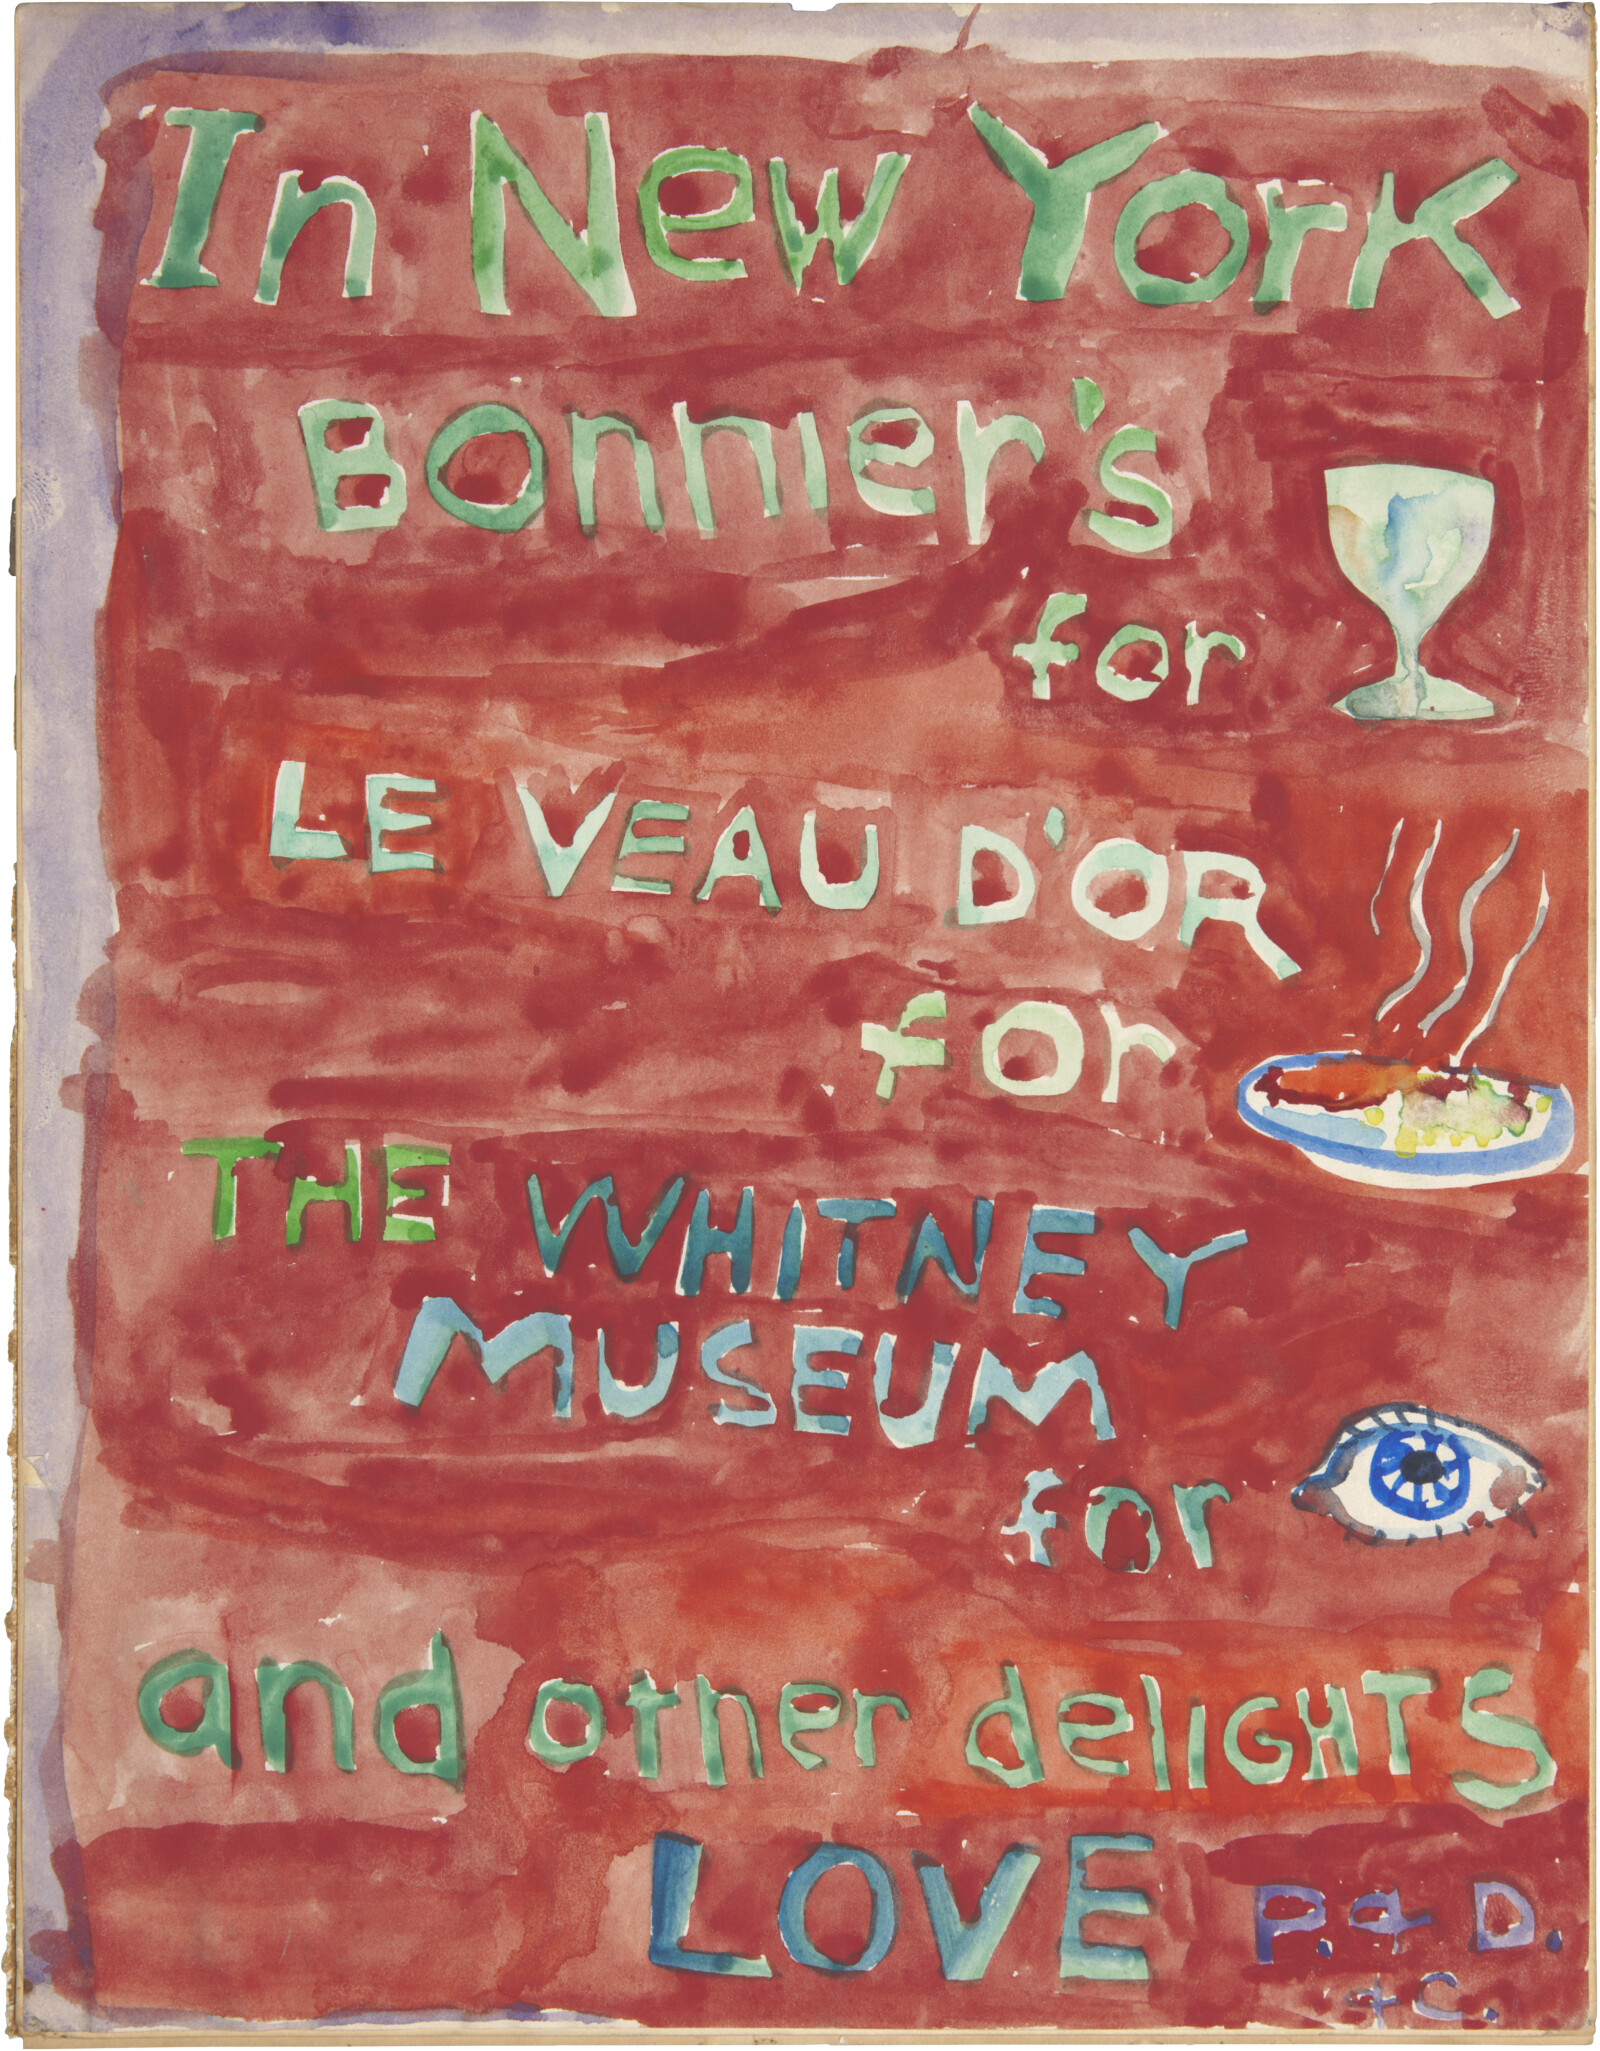 In New York
Bonnier's
for
LE VEAU D'OR
for
THE WHITNEY
MUSEUM
for
and other deliGHTS
LOVE P. & D.
& C.